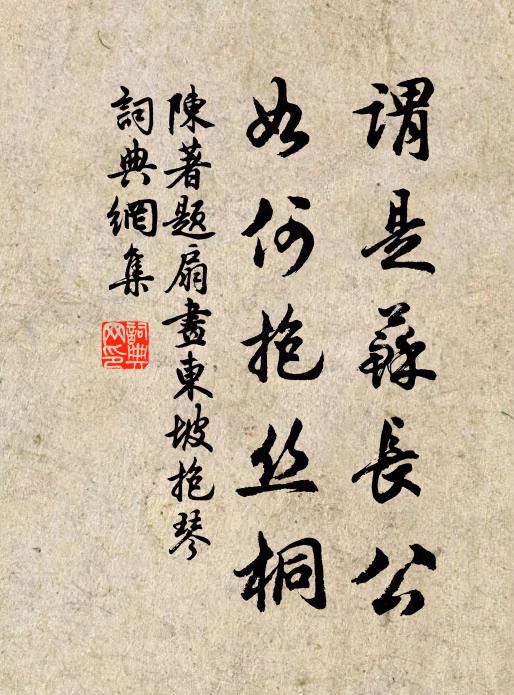 謂是蘇長公
如何抱丝桐
陳著题扇畫東坡抱琴
詞典網集
詞典網印